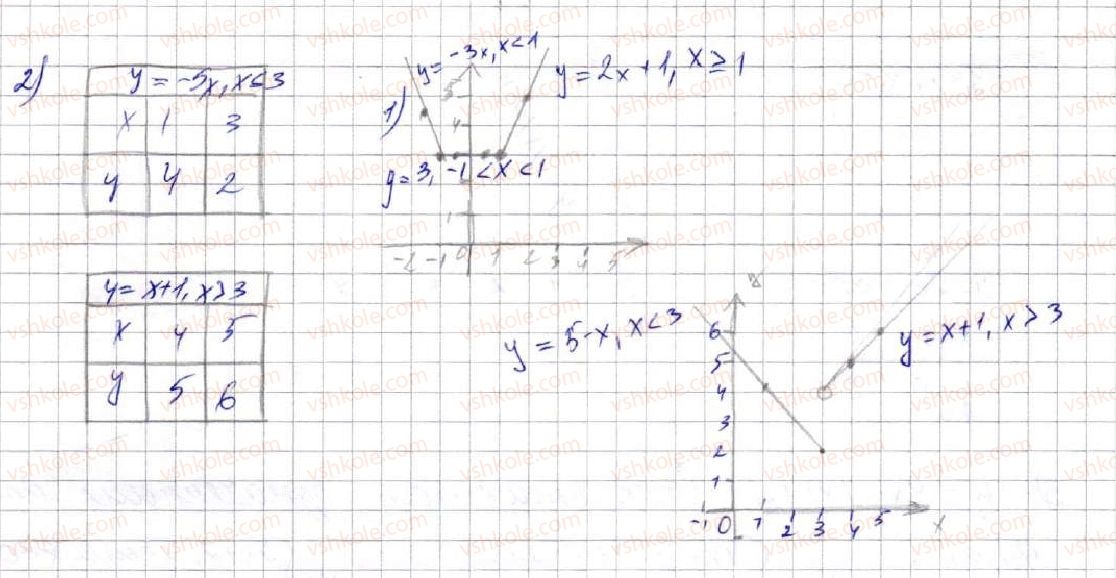 2)
y = -5x, x<3
x 1 3
y 4 2
y = x+1, x>3
x 4 5
y 5 6
1)
y = -3x, x<1
y = 2x+1, x ≥ 1
y = 3, -1 < x < 1
5
4
1
-2 -1 0 1 2 3 4 5
y = 5-x, x<3
y = x+1, x > 3
6
5
4
3
2
1
-1 0 1 2 3 4 5
x
vshkole.com